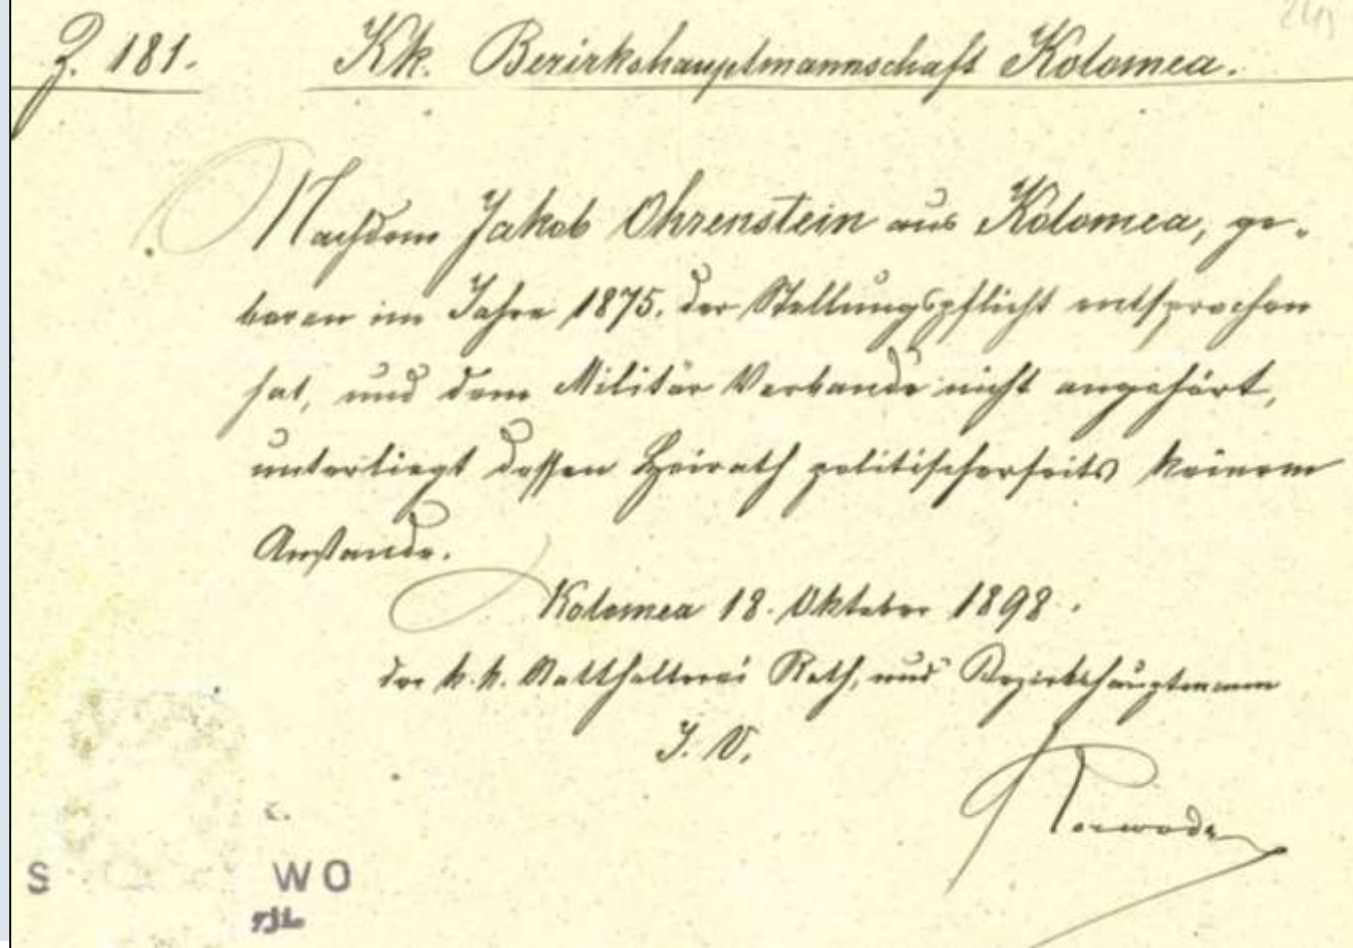 Z. 181. Kk. Bezirkshauptmannschaft Kolomea.
Nachdem Jakob Ohrenstein aus Kolomea, ge-
boren im Jahre 1875. der Stellungspflicht entsprochen
hat, und dem Militär Verbande nicht angehört,
unterliegt dessen Heirath politischerseits keinem
Anstande.
Kolomea 18. Oktober 1898.
der k.k. Statthalterei Rath, und Bezirkshauptmann
I. V.
S WO